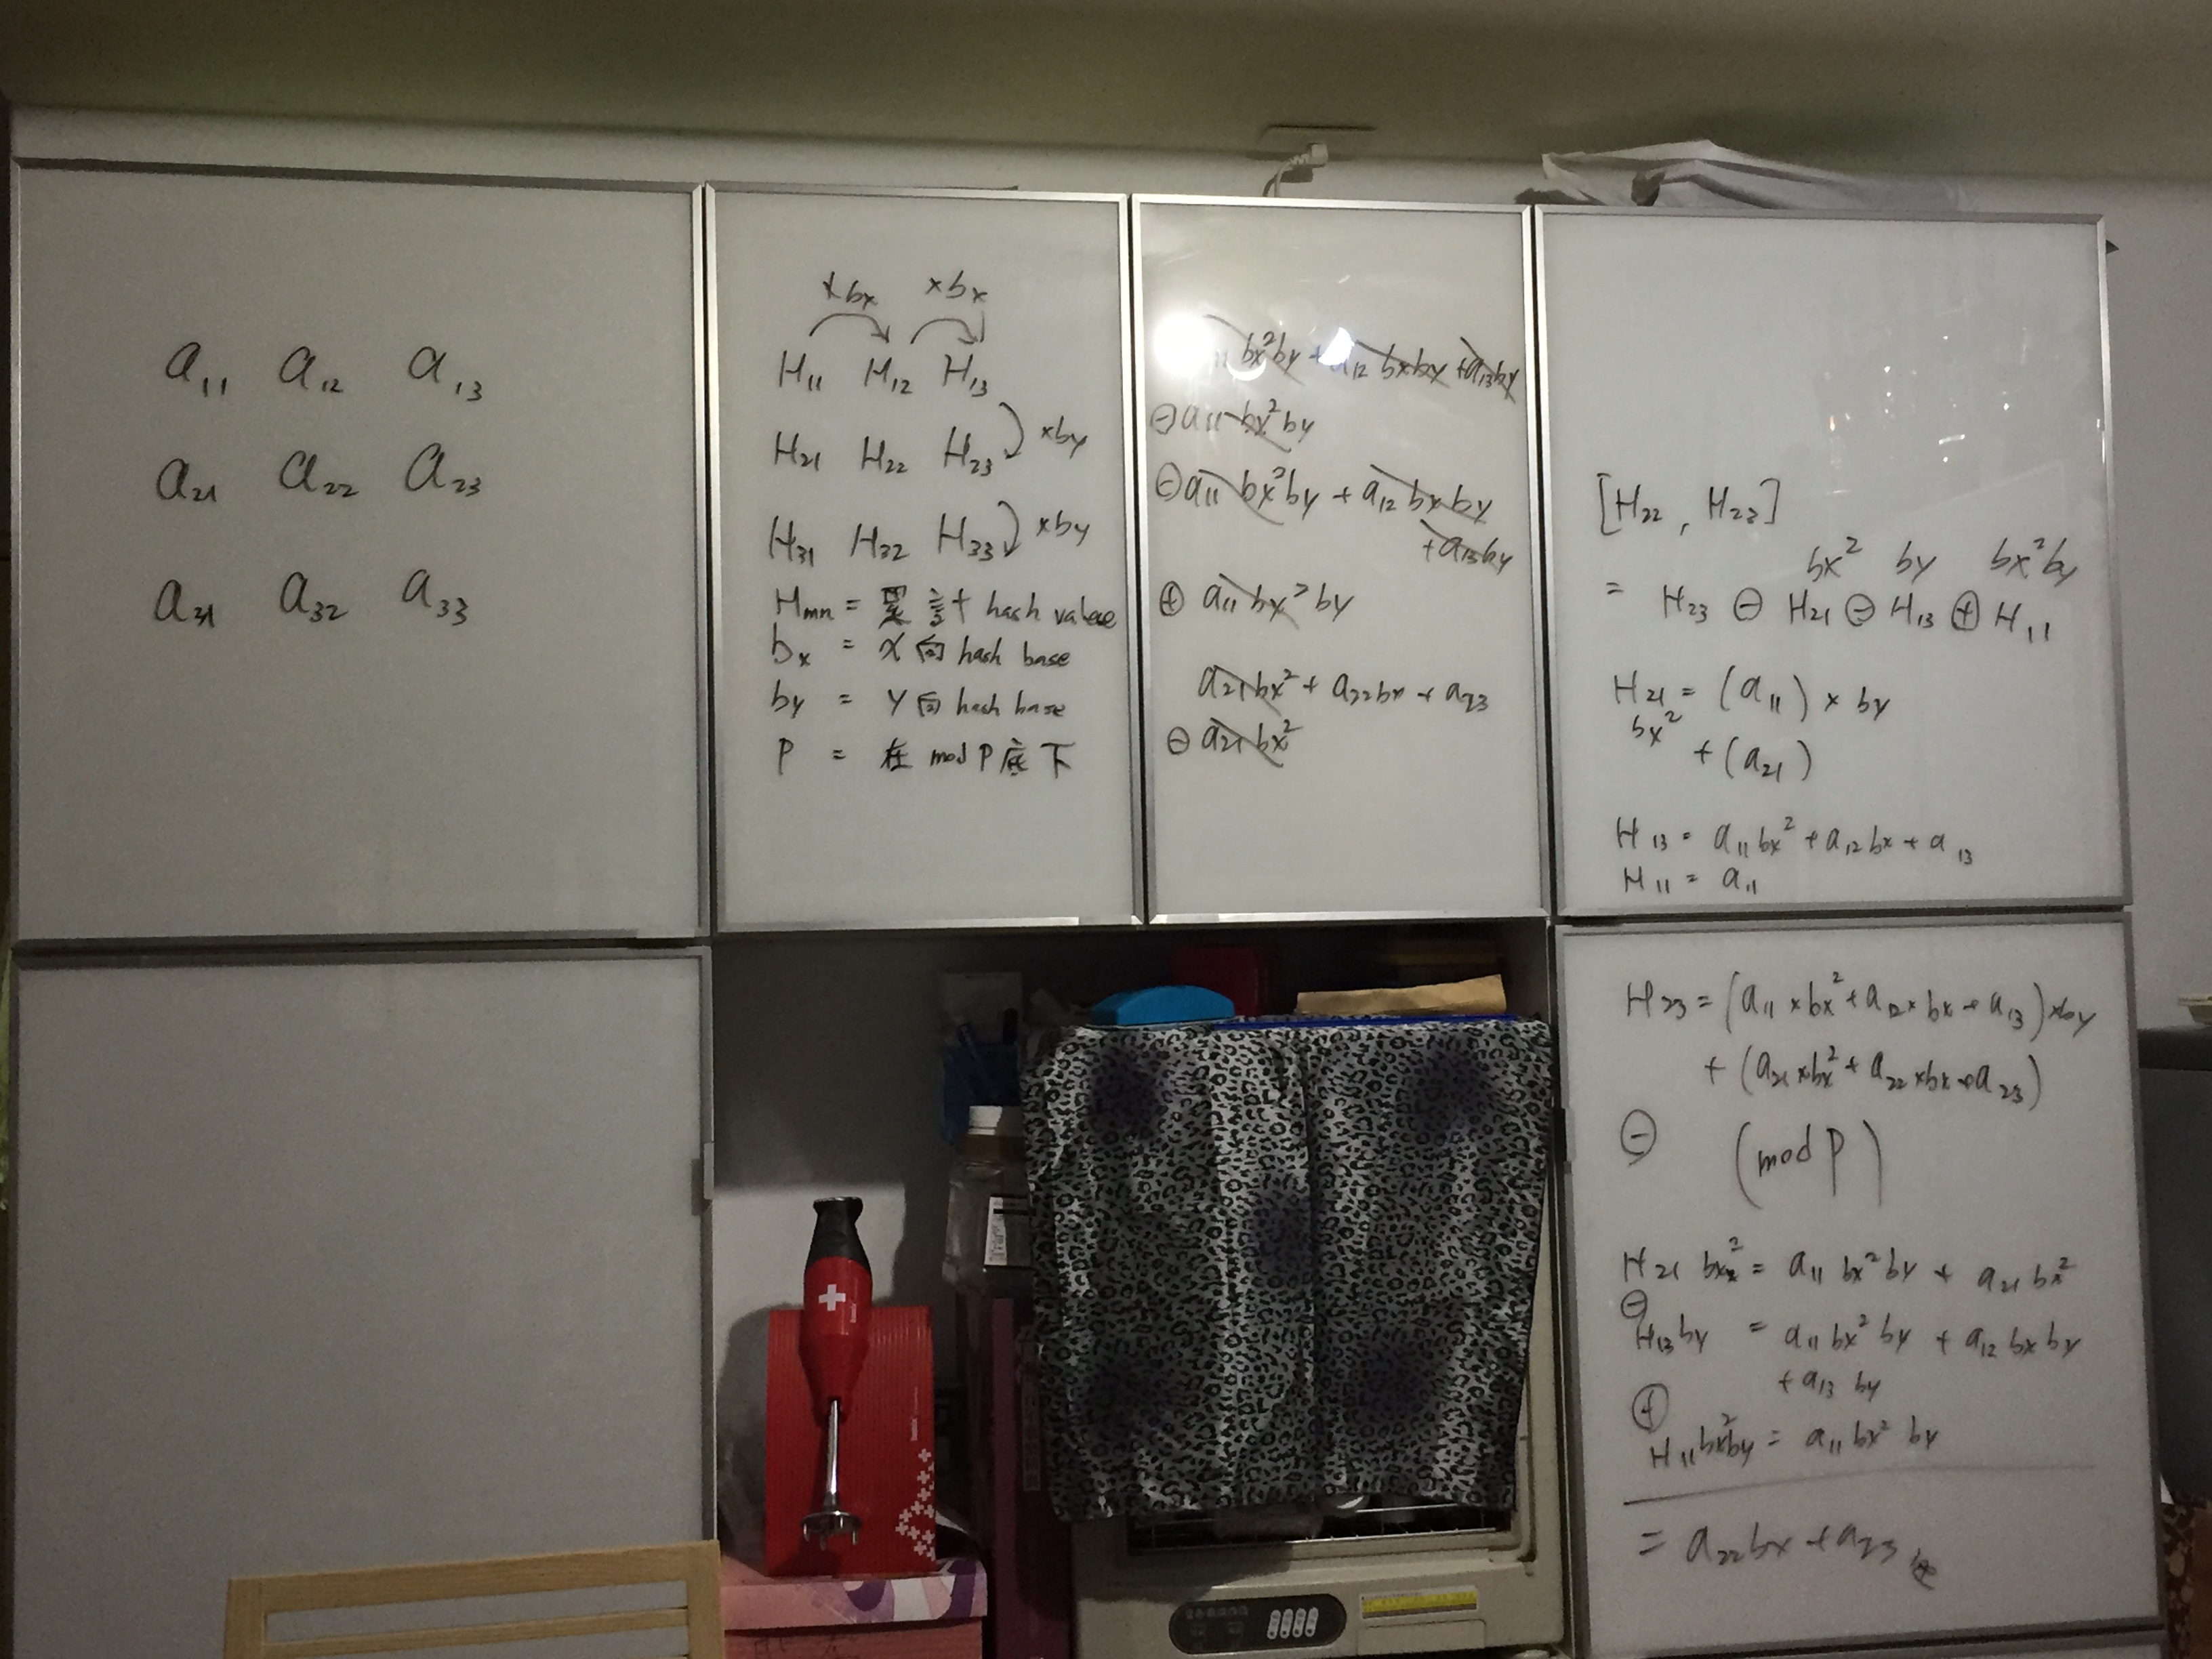 a₁₁ a₁₂ a₁₃
a₂₁ a₂₂ a₂₃
a₃₁ a₃₂ a₃₃
×bx ×bx
H₁₁ H₁₂ H₁₃
×by
H₂₁ H₂₂ H₂₃
×by
H₃₁ H₃₂ H₃₃
Hmn = 累計 hash value
bx = x向 hash base
by = Y向 hash base
P = 在 mod P 底下
₁₁ bx²by + a₁₂ bxby + a₁₃by
⊖ a₁₁ bx²by
⊖ a₁₁ bx²by + a₁₂ bx by
+ a₁₃by
⊕ a₁₁ bx²by
a₂₁bx² + a₂₂bx + a₂₃
⊖ a₂₁bx²
[H₂₂, H₂₃]
bx² by bx²by
= H₂₃ ⊖ H₂₁ ⊖ H₁₃ ⊕ H₁₁
H₂₁ = (a₁₁) × by
bx²
+ (a₂₁)
H₁₃ = a₁₁bx² + a₁₂bx + a₁₃
H₁₁ = a₁₁
H₂₃ = (a₁₁×bx² + a₁₂×bx + a₁₃)×by
+ (a₂₁×bx² + a₂₂×bx + a₂₃)
⊖ (mod P)
H₂₁ bx² = a₁₁ bx²by + a₂₁ bx²
⊖
H₁₃by = a₁₁ bx² by + a₁₂ bx by
+ a₁₃ by
⊕
H₁₁bx²by = a₁₁ bx² by
= a₂₂bx + a₂₃